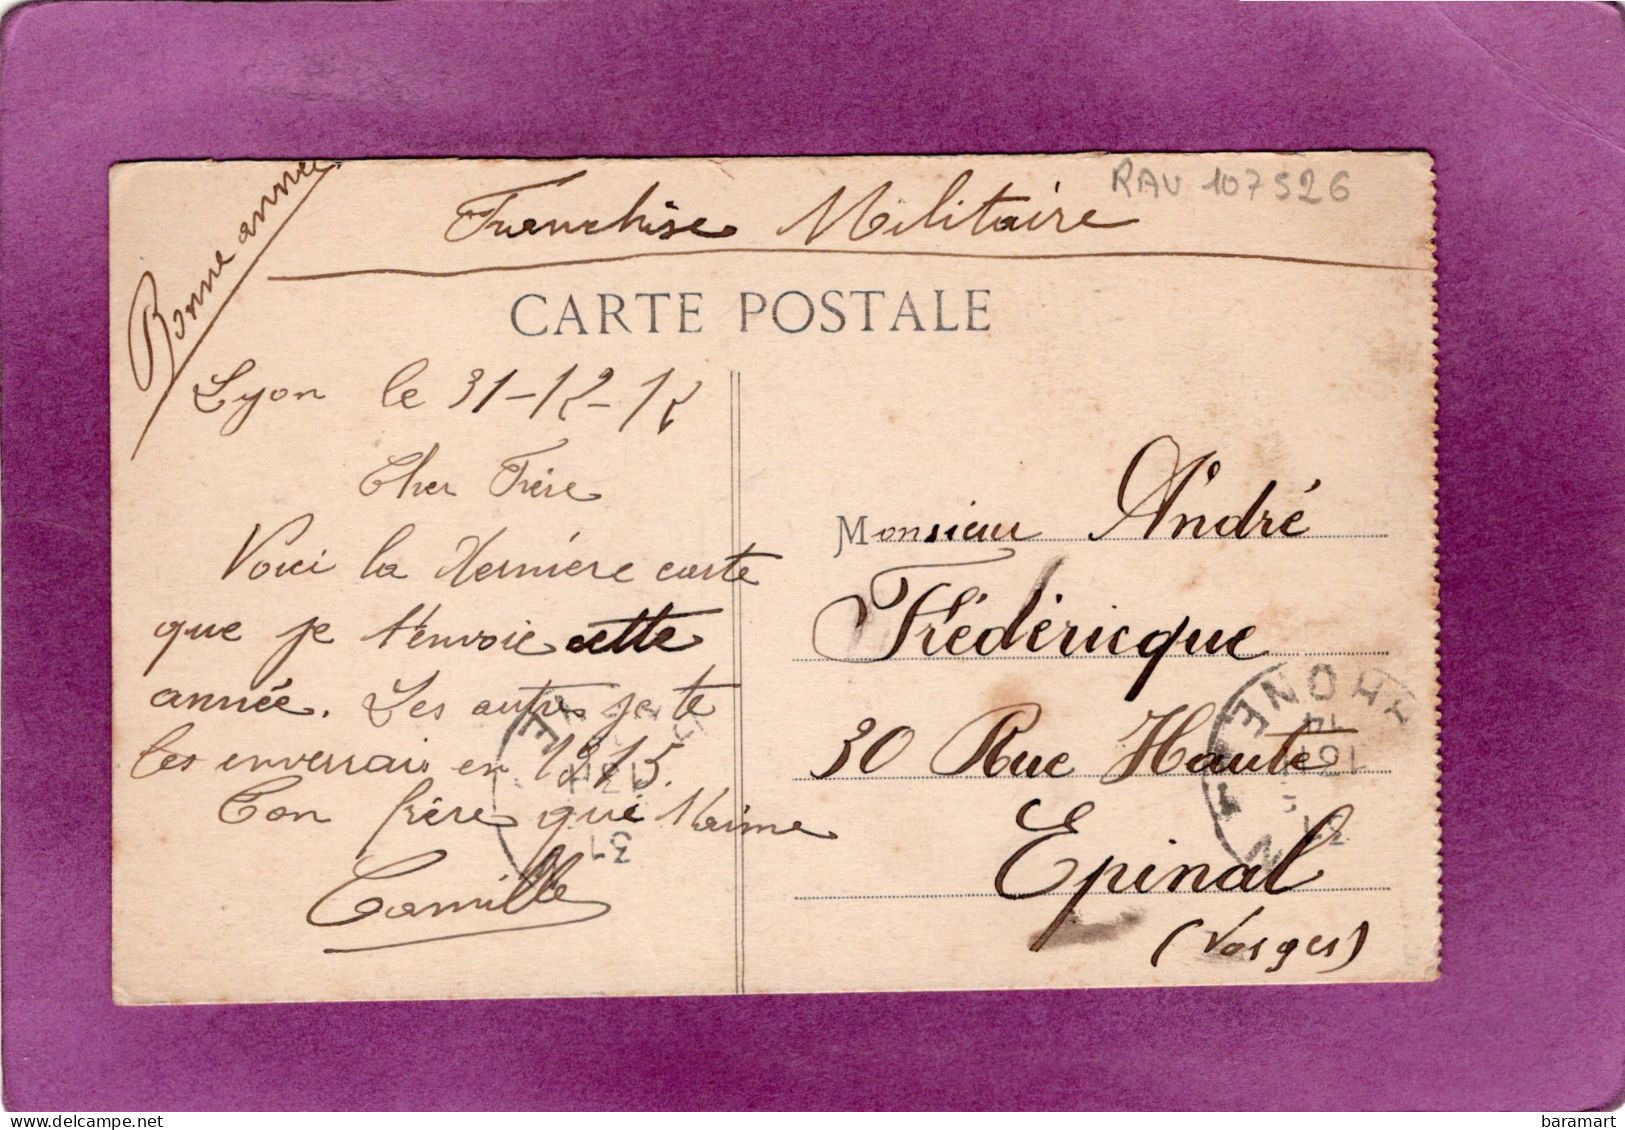 Bonne année
Franchise Militaire
RAV 107526
CARTE POSTALE
Lyon le 31-12-14
Cher Frère
Voici la dernière carte
que je t'envoie cette
année. Les autres je te
les enverrai en 1915.
Ton frère qui t'aime
Camille
Monsieur André
Frédéricque
30 Rue Haute
Epinal
(Vosges)
RHONE
31
baramart